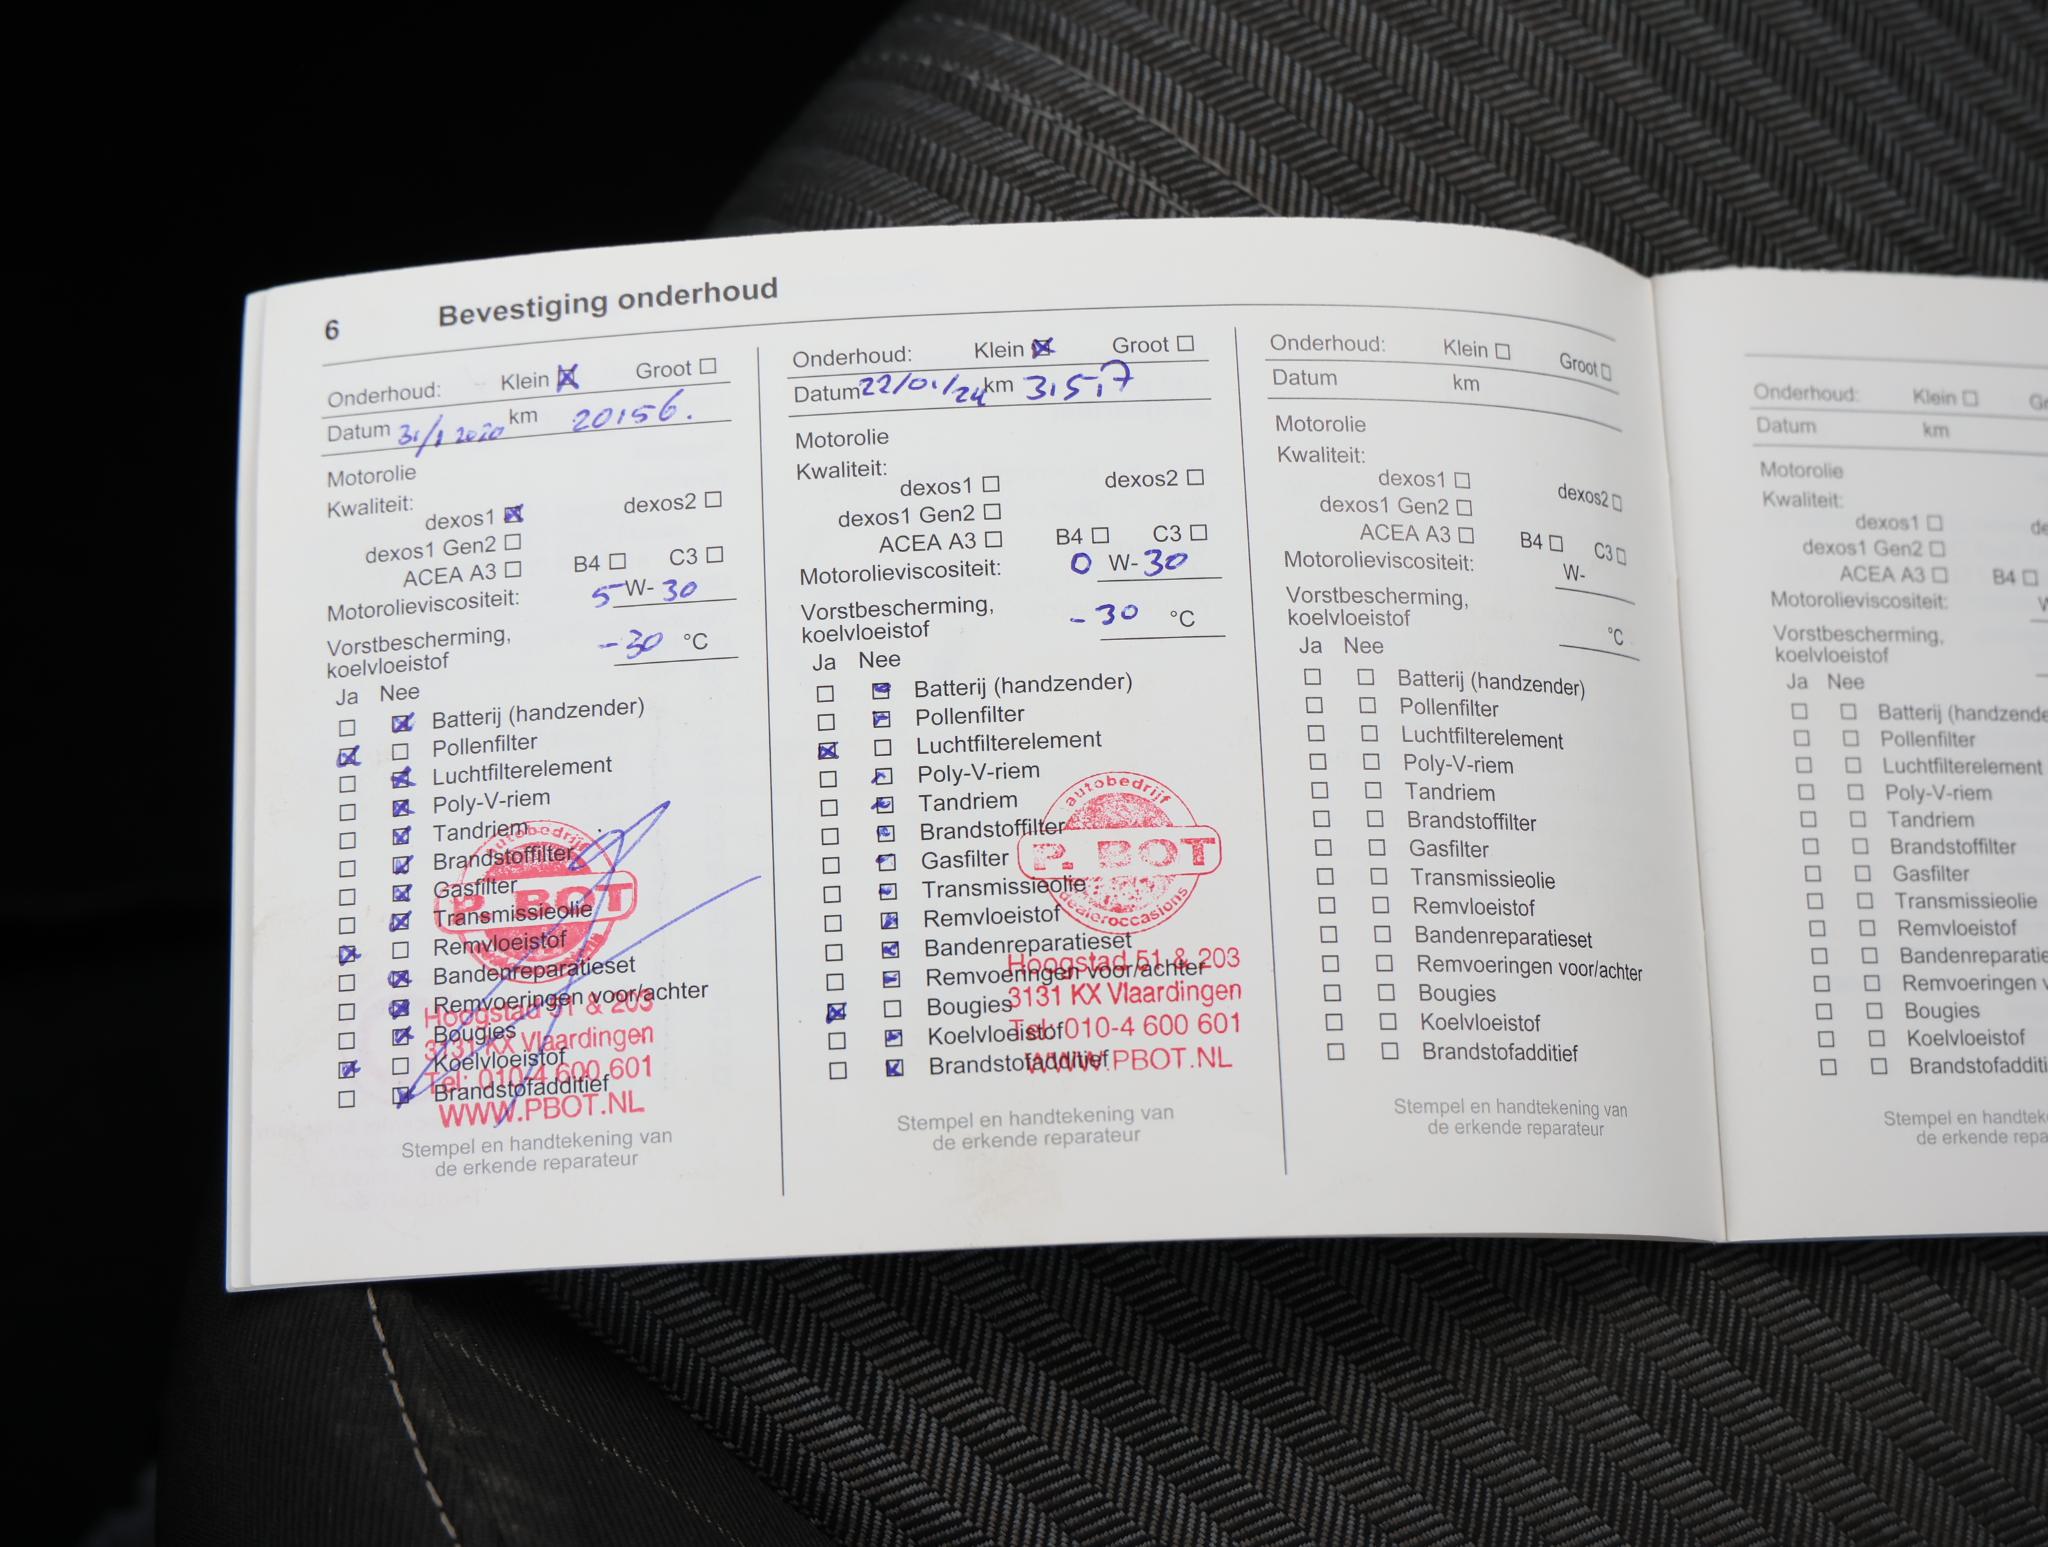 6 Bevestiging onderhoud
Onderhoud: Klein Groot
Datum 31/1 2020 km 20156.
Motorolie
Kwaliteit:
dexos1 dexos2
dexos1 Gen2
ACEA A3 B4 C3
Motorolieviscositeit: 5 W- 30
Vorstbescherming,
koelvloeistof -30 °C
Ja Nee
Batterij (handzender)
Pollenfilter
Luchtfilterelement
Poly-V-riem
Tandriem
Brandstoffilter
Gasfilter
Transmissieolie
Remvloeistof
Bandenreparatieset
Remvoeringen voor/achter
Bougies
Koelvloeistof
Brandstofadditief
autobedrijf
P. BOT
Hoogstad 51 & 203
3131 KX Vlaardingen
Tel: 010-4 600 601
WWW.PBOT.NL
Stempel en handtekening van
de erkende reparateur
Onderhoud: Klein Groot
Datum 22/01/24 km
Motorolie
Kwaliteit:
dexos1 dexos2
dexos1 Gen2
ACEA A3 B4 C3
Motorolieviscositeit: 0 W- 30
Vorstbescherming,
koelvloeistof -30 °C
Ja Nee
Batterij (handzender)
Pollenfilter
Luchtfilterelement
Poly-V-riem
Tandriem
Brandstoffilter
Gasfilter
Transmissieolie
Remvloeistof
Bandenreparatieset
Remvoeringen voor/achter
Bougies
Koelvloeistof
Brandstofadditief
autobedrijf
P. BOT
dealeroccasions
Hoogstad 51 & 203
3131 KX Vlaardingen
Tel: 010-4 600 601
WWW.PBOT.NL
Stempel en handtekening van
de erkende reparateur
Onderhoud: Klein Groot
Datum km
Motorolie
Kwaliteit:
dexos1 dexos2
dexos1 Gen2
ACEA A3 B4 C3
Motorolieviscositeit: W-
Vorstbescherming,
koelvloeistof °C
Ja Nee
Batterij (handzender)
Pollenfilter
Luchtfilterelement
Poly-V-riem
Tandriem
Brandstoffilter
Gasfilter
Transmissieolie
Remvloeistof
Bandenreparatieset
Remvoeringen voor/achter
Bougies
Koelvloeistof
Brandstofadditief
Stempel en handtekening van
de erkende reparateur
Onderhoud: Klein
Datum km
Motorolie
Kwaliteit:
dexos1
dexos1 Gen2
ACEA A3 B4
Motorolieviscositeit:
Vorstbescherming,
koelvloeistof
Ja Nee
Batterij (handzende
Pollenfilter
Luchtfilterelement
Poly-V-riem
Tandriem
Brandstoffilter
Gasfilter
Transmissieolie
Remvloeistof
Bandenreparatie
Remvoeringen v
Bougies
Koelvloeistof
Brandstofadditi
Stempel en handtek
de erkende repa